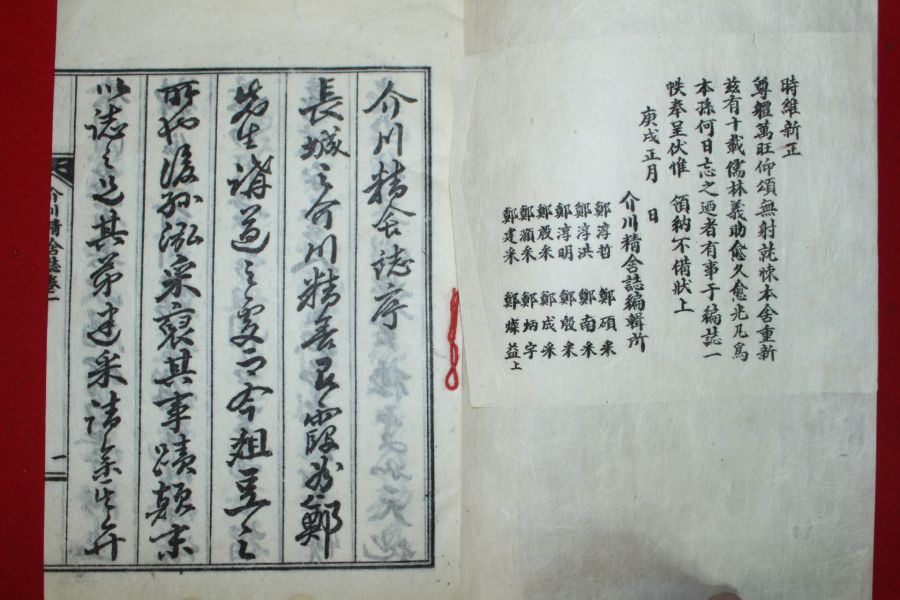 時維新正
尊體萬旺仰頌無射就悚本舍重新
茲有十載儒林義助愈久愈光凡爲
本孫何日忘之迺者有事于編誌一
帙奉呈伏惟 領納不備狀上
庚戌正月 日
介川精舍誌編輯所
鄭淳哲 鄭碩采
鄭淳洪 鄭南采
鄭淳明 鄭殷采
鄭殷采 鄭成采
鄭灝采 鄭炳宇
鄭建采 鄭燦益 上
介川精舍誌序
長城之介川精舍鄭
先生講道之處而今俎豆之
所也後孫泓采裒其事蹟顛末
以誌之其弟建采請余一言弁
介川精舍誌卷一
一